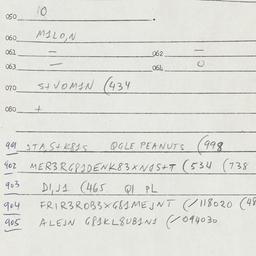 050 10 .
060 M1LO,N
061 — 062 —
063 — 064 0
070 S+VOM1N (434
080 +
901 STA,S+K81S QGLE PEANUTS (998
902 MER3RGP1DENK83XNOS+T (534 (738
903 DI,J1 (465 Q1 PL
904 FR1R3ROB3XG81MEJNT (/118020 (48
905 ALEJN G81KL8UB1N1 (/094030